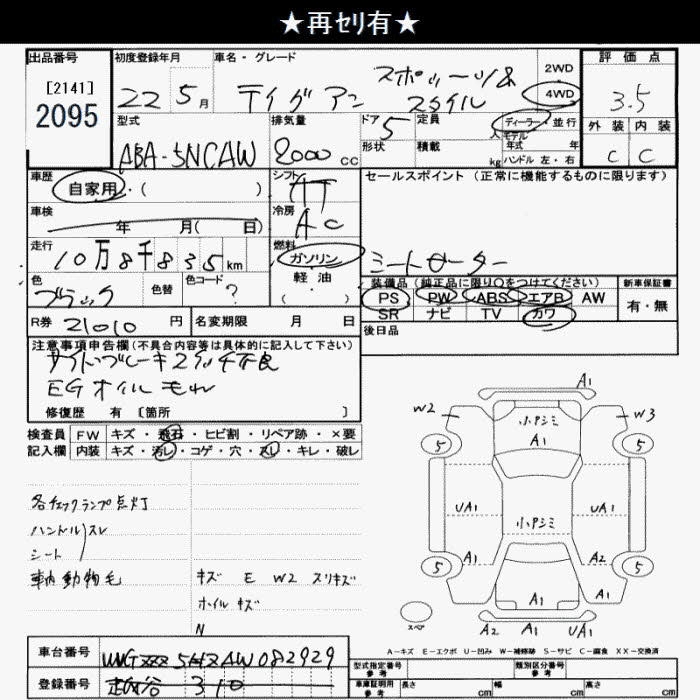 ★再ｾﾘ有★
出品番号
[2141]
2095
初度登録年月
22 5月
車名・グレード
ティグアン スポーツ&スタイル
2WD
4WD
評価点
3.5
外装 内装
C C
型式
ABA-5NCAW
排気量
2000cc
ドア
5
形状
定員
人
積載
kg
ディーラー・並行
モデル年式 年
ハンドル 左・右
車歴
自家用・( )
シフト
AT
セールスポイント(正常に機能するものに限ります)
シートヒーター
車検
年 月( 日)
冷房
AC
走行
10万8千835km
燃料
ガソリン
軽・油
( )
色
ブラック
色替
色コード
?
装備品(純正品に限り○をつけてください)
PS PW ABS エアB AW
SR ナビ TV カワ
新車保証書
有・無
R券 21010円
名変期限 月 日
後日品
注意事項申告欄(不具合内容等は具体的に記入して下さい)
サイドブレーキスイッチ不良
EGオイルモレ
修復歴 有 [箇所 ]
検査員記入欄
FW キズ・飛石・ヒビ割・リペア跡・×要
内装 キズ・汚レ・コゲ・穴・スレ・キレ・破レ
各チェックランプ点灯
ハンドルスレ
シート
車内動物毛
キズ E W2 スリキズ
ホイルキズ
N
A1
W2
小Pシミ
A1
W3
5
5
UA1
小Pシミ
UA1
A1
A2
5
5
A1
A1
A2 A1 UA1
スペア
A-キズ E-エクボ U-凹み W-補修跡 S-サビ C-腐食 XX-交換済
車台番号
WVGZZZ5NZAW082929
登録番号
310
型式指定番号 参考
類別区分番号 参考
車庫証明用 参考
長さ cm
幅 cm
高さ cm